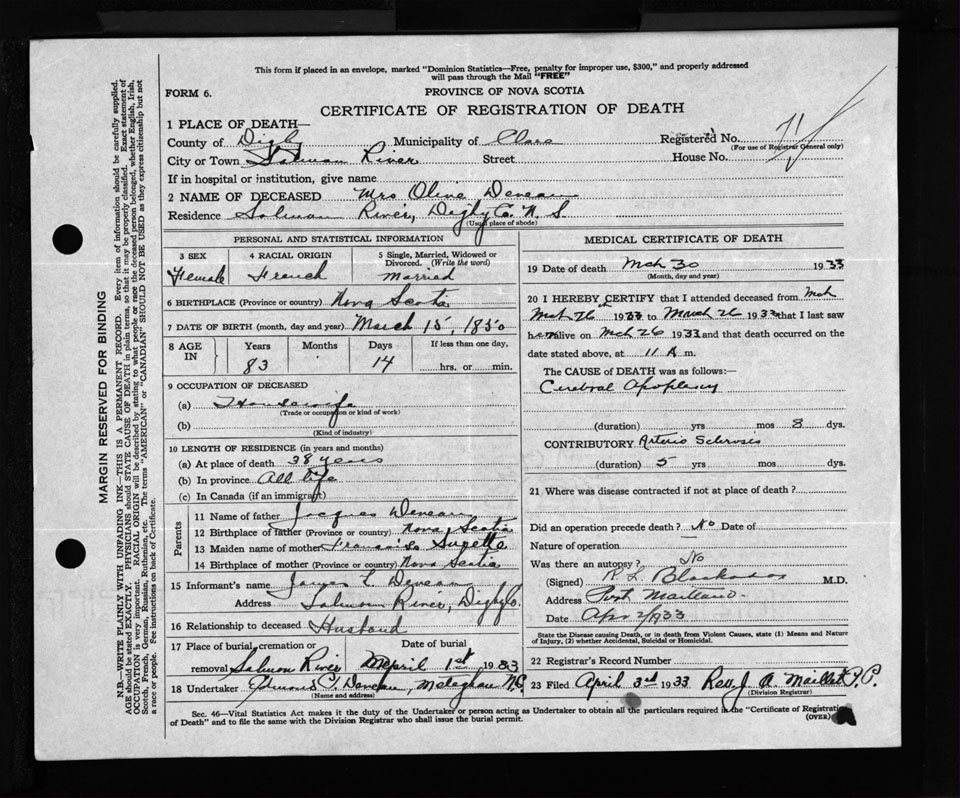 This form if placed in an envelope, marked "Dominion Statistics—Free, penalty for improper use, $300," and properly addressed
will pass through the Mail "FREE"
FORM 6.
PROVINCE OF NOVA SCOTIA
CERTIFICATE OF REGISTRATION OF DEATH
1 PLACE OF DEATH—
County of Digby Municipality of Clare Registered No.
(For use of Registrar General only)
City or Town Salmon River Street House No.
If in hospital or institution, give name
2 NAME OF DECEASED Mrs Olive Deveau
Residence Salmon River, Digby Co. N. S.
(Usual place of abode)
PERSONAL AND STATISTICAL INFORMATION
3 SEX
Female
4 RACIAL ORIGIN
French
5 Single, Married, Widowed or
Divorced. (Write the word)
Married
6 BIRTHPLACE (Province or country) Nova Scotia
7 DATE OF BIRTH (month, day and year) March 15, 1850
8 AGE IN
Years 83
Months
Days 14
If less than one day,
hrs. or min.
9 OCCUPATION OF DECEASED
(a) Housewife
(Trade or occupation or kind of work)
(b)
(Kind of industry)
10 LENGTH OF RESIDENCE (in years and months)
(a) At place of death 38 years
(b) In province All life
(c) In Canada (if an immigrant)
Parents
11 Name of father Jacques Deveau
12 Birthplace of father (Province or country) Nova Scotia
13 Maiden name of mother Surette
14 Birthplace of mother (Province or country) Nova Scotia
15 Informant's name James L. Deveau
Address Salmon River, Digby Co.
16 Relationship to deceased Husband
17 Place of burial, cremation or Date of burial
removal Salmon River April 1st, 1933
18 Undertaker Deveau, Meteghan N.S.
(Name and address)
MEDICAL CERTIFICATE OF DEATH
19 Date of death Mch 30 1933
(Month, day and year)
20 I HEREBY CERTIFY that I attended deceased from Mch
Mch 26th 1933 to March 26 1933 that I last saw
her alive on Mch 26 1933 and that death occurred on
date stated above, at 11 A m.
The CAUSE of DEATH was as follows:—
Cerebral Apoplexy
(duration) yrs mos 8 dys.
CONTRIBUTORY Arterio Schrosis
(duration) 5 yrs mos dys.
21 Where was disease contracted if not at place of death?
Did an operation precede death? No Date of
Nature of operation
Was there an autopsy? No
(Signed) M.D.
Address Port Maitland
Date Apr 2/1933
State the Disease causing Death, or in death from Violent Causes, state (1) Means and Nature
of Injury, (2) whether Accidental, Suicidal or Homicidal.
22 Registrar's Record Number
23 Filed April 3rd 1933 Rev. J. A. Maillet P.P.
(Division Registrar)
Sec. 46—Vital Statistics Act makes it the duty of the Undertaker or person acting as Undertaker to obtain all the particulars required in the "Certificate of Registration
of Death" and to file the same with the Division Registrar who shall issue the burial permit.
(OVER)
MARGIN RESERVED FOR BINDING
N.B.—WRITE PLAINLY WITH UNFADING INK—THIS IS A PERMANENT RECORD. Every item of information should be carefully supplied.
AGE should be stated EXACTLY. PHYSICIANS should STATE CAUSE OF DEATH in plain terms, so that it may be properly classified. Exact statement of
OCCUPATION is very important. RACIAL ORIGIN will be described by stating to what people or race the deceased person belonged, whether English, Irish,
Scotch, French, German, Russian, Ruthenian, etc. The terms "AMERICAN" or "CANADIAN" SHOULD NOT BE USED as they express citizenship but not
a race or people. See instructions on back of Certificate.